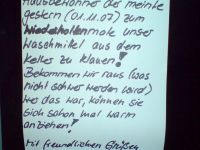 Hausbewohner der meinte
gestern (01.11.07) zum
wiederholtenmale unser
Waschmittel aus dem
Keller zu klauen!
Bekommen wir raus (was
nicht schwer werden wird)
wer das war, können sie
sich schon mal warm
anziehen!
Mit freundlichen Grüßen